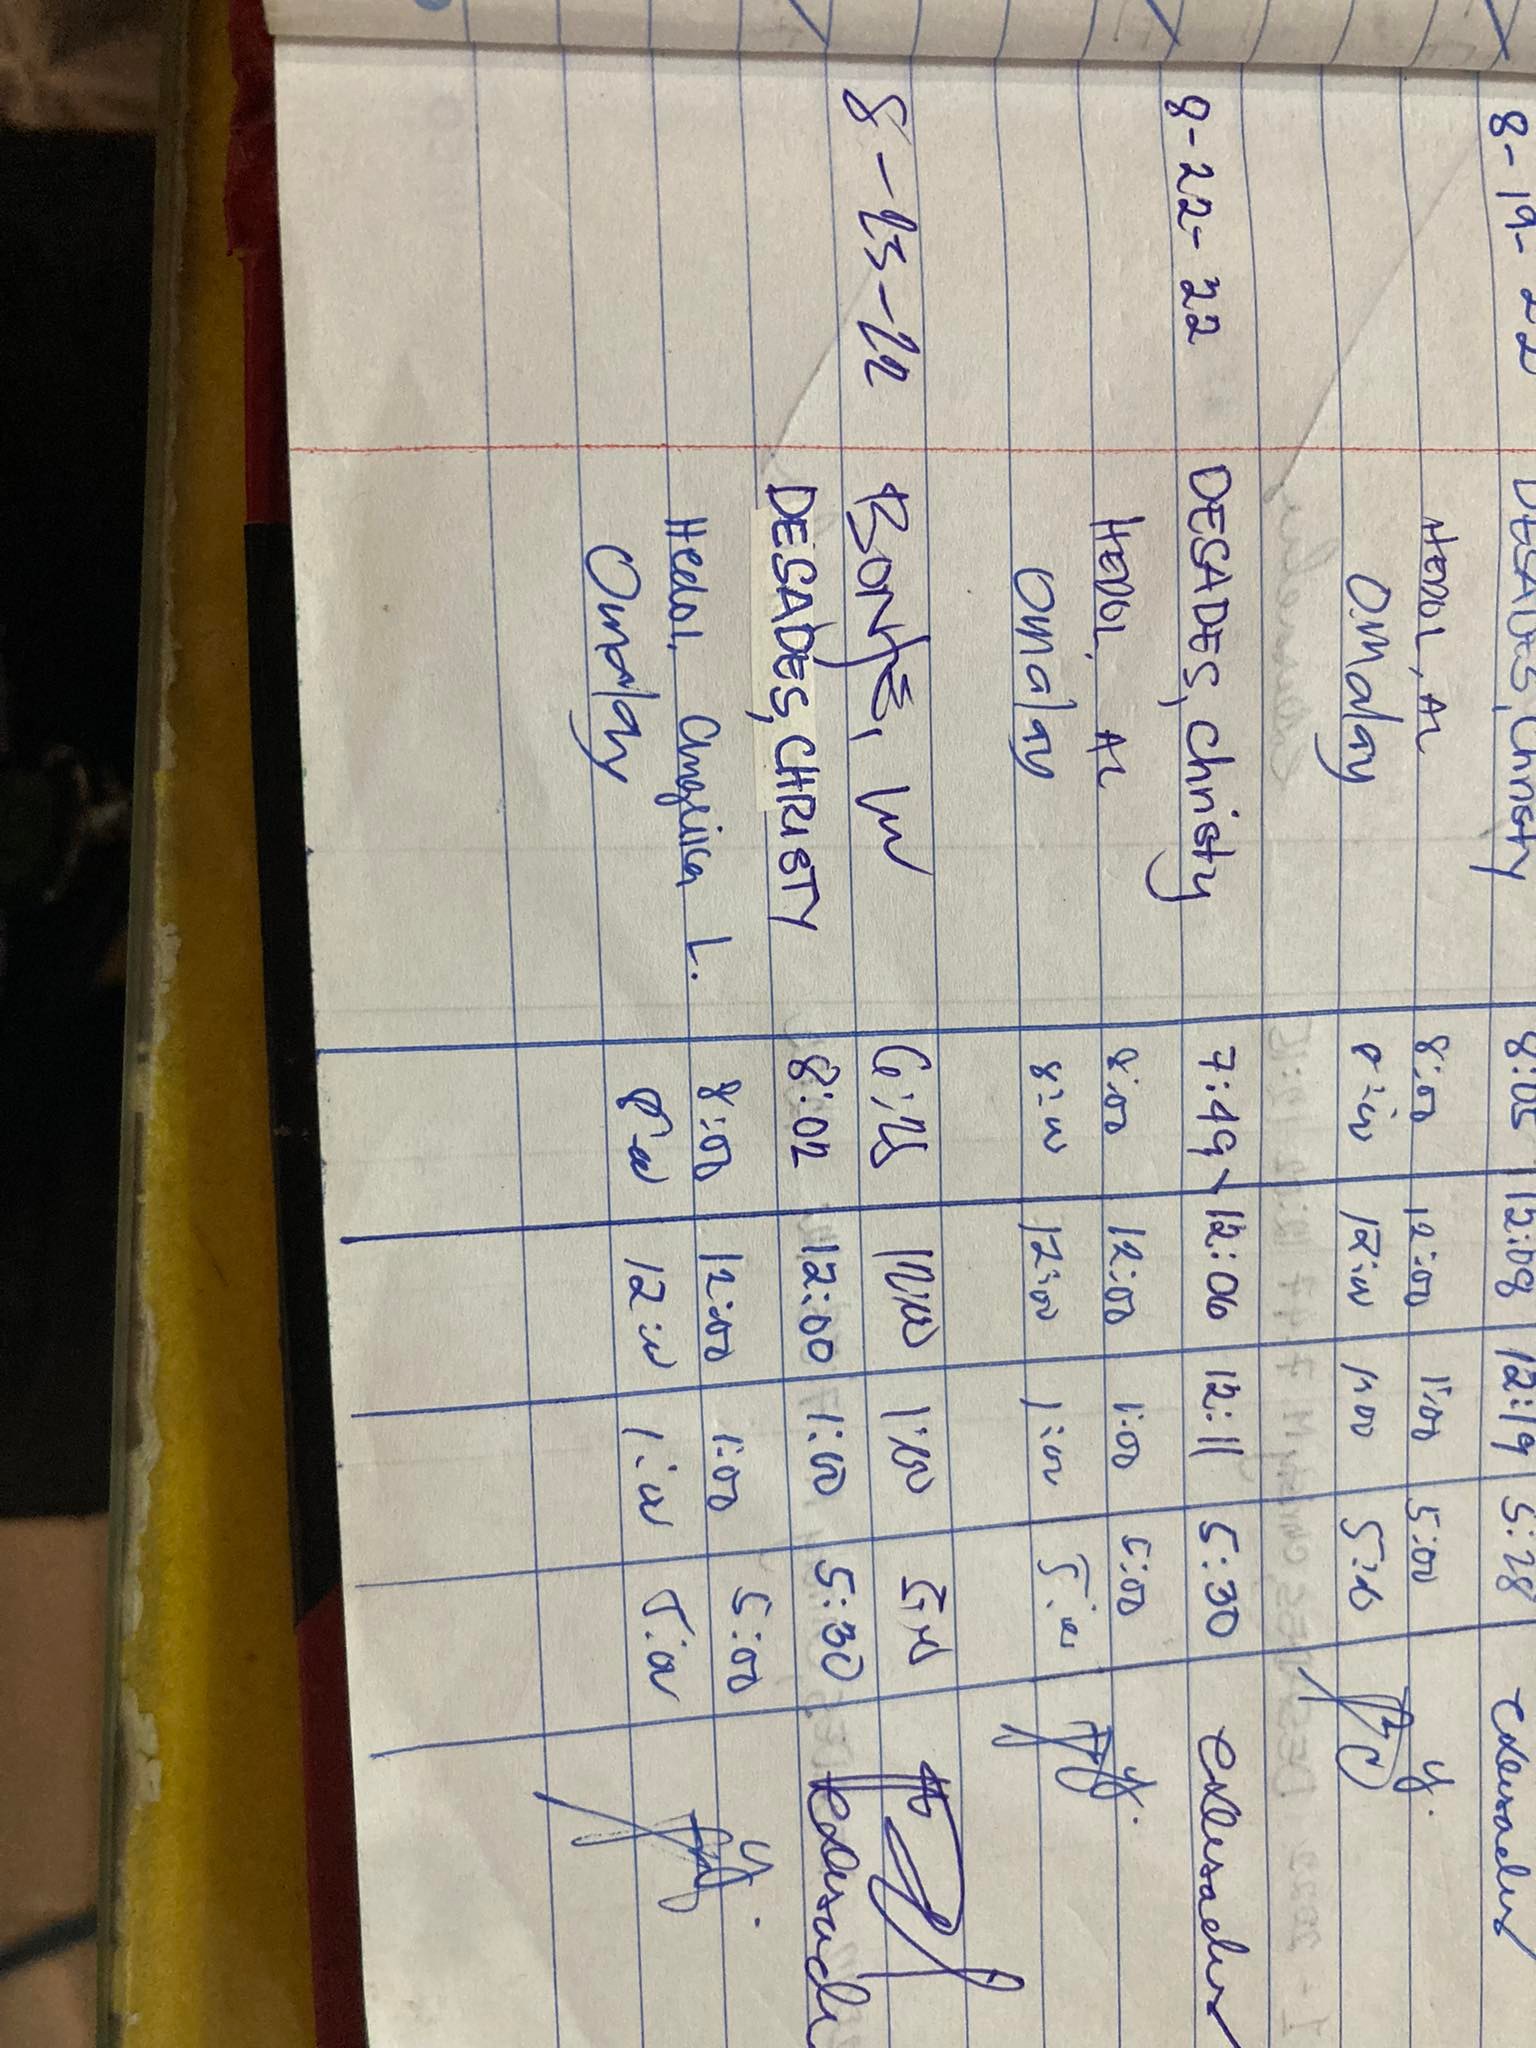 8-19-22 DESADES, Christy 8:05 12:08 12:19 5:28
HEDOL, AL 8:00 12:00 1:00 5:00
Omalay 8:00 12:00 1:00 5:00
8-22-22 DESADES, Christy 7:49 12:06 12:11 5:30
HEDOL, AL 8:00 12:00 1:00 5:00
Omalay 8:00 12:00 1:00 5:00
8-23-22 12:00 1:00
DESADES, CHRISTY 8:02 12:00 1:00 5:30
Hedol, Angelica L. 8:00 12:00 1:00 5:00
Omalay 8:00 12:00 1:00 5:00